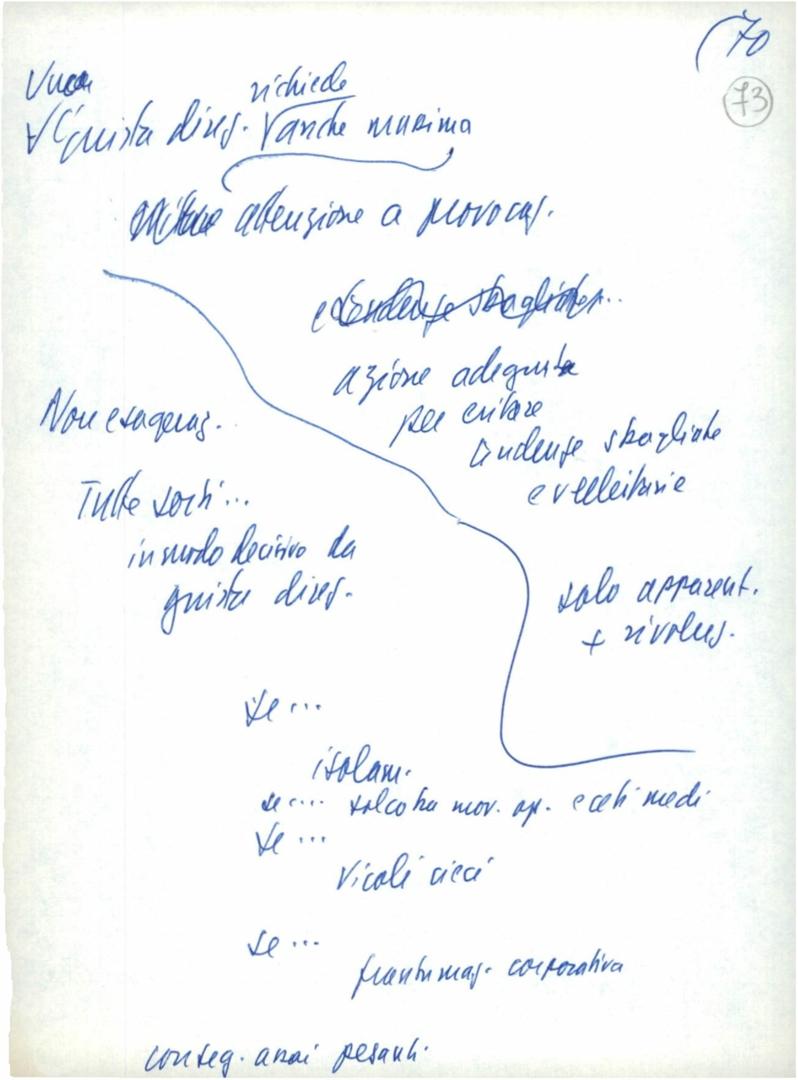 (70
73
Una
richiede
giusta direz. anche massima
attenzione a provocaz.
azione adeguata
per evitare
tendenze sbagliate
e velleitarie
Non esageraz.
Tutte sorti...
in modo decisivo da
giusta direz.
solo apparent.
+ rivoluz.
se ...
isolam.
se ... solco tra mov. op. e ceti medi
se ...
vicoli ciechi
se ...
frantumaz. corporativa
conseg. assai pesanti.